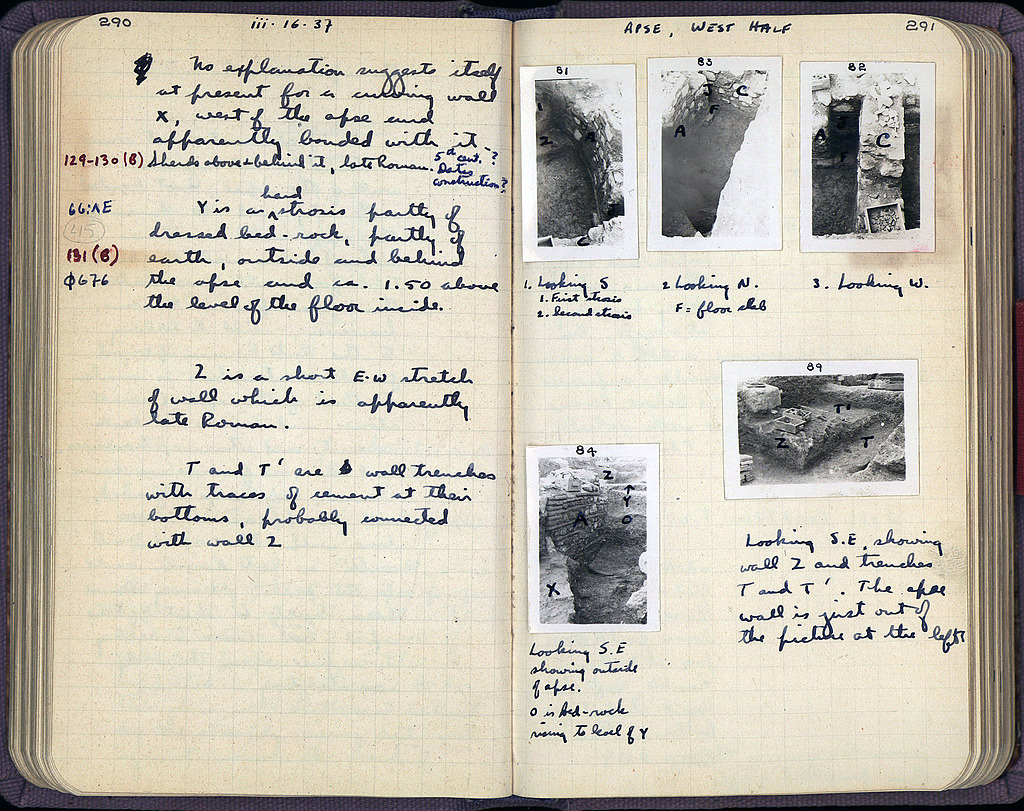 290
iii·16·37
No explanation suggests itself
at present for a curving wall
X, west of the apse and
apparently bonded with it.
129-130 (B) Sherds above + behind it, late Roman. 5th cent. ?
Dates
construction?
hard
66:ΛE Y is a strosis partly of
45 dressed bed-rock, partly of
131 (B) earth, outside and behind
Φ676 the apse and ca. 1.50 above
the level of the floor inside.
Z is a short E-W stretch
of wall which is apparently
late Roman.
T and T' are wall trenches
with traces of cement at their
bottoms, probably connected
with wall Z
APSE, WEST HALF
291
81
1
Z
A
83
J
C
F
A
82
A
J
F
C
1. Looking S
1. First strosis
2. Second strosis
2 Looking N.
F = floor slab
3. Looking W.
89
T'
Z
T
84
Z
↑
Y
A
O
X
Looking S.E, showing
wall Z and trenches
T and T'. The apse
wall is just out of
the picture at the left
Looking S.E
showing outside
of apse.
O is bed-rock
rising to level of Y